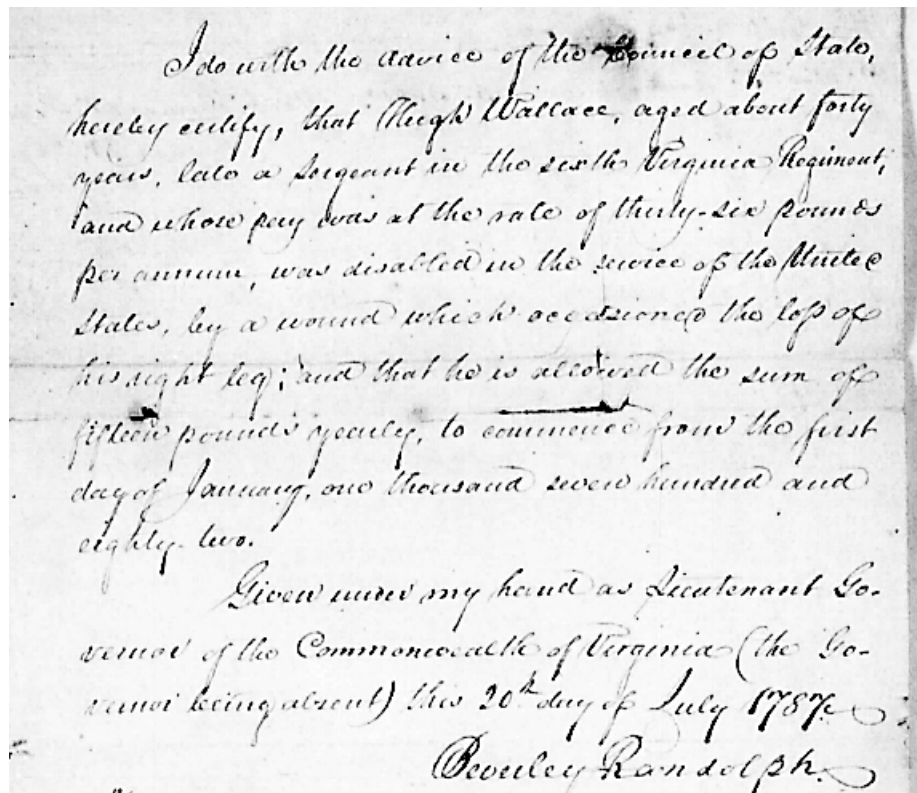 I do with the advice of the Council of State,
hereby certify, that Hugh Wallace, aged about forty
years, late a Sergeant in the sixth Virginia Regiment,
and whose pay was at the rate of thirty-six pounds
per annum, was disabled in the service of the United
States, by a wound which occasioned the loss of
his right leg; and that he is allowed the sum of
fifteen pounds yearly, to commence from the first
day of January, one thousand seven hundred and
eighty-two.
Given under my hand as Lieutenant Go-
vernor of the Commonwealth of Virginia (the Go-
vernor being absent) this 20th day of July 1787.
Beverley Randolph.